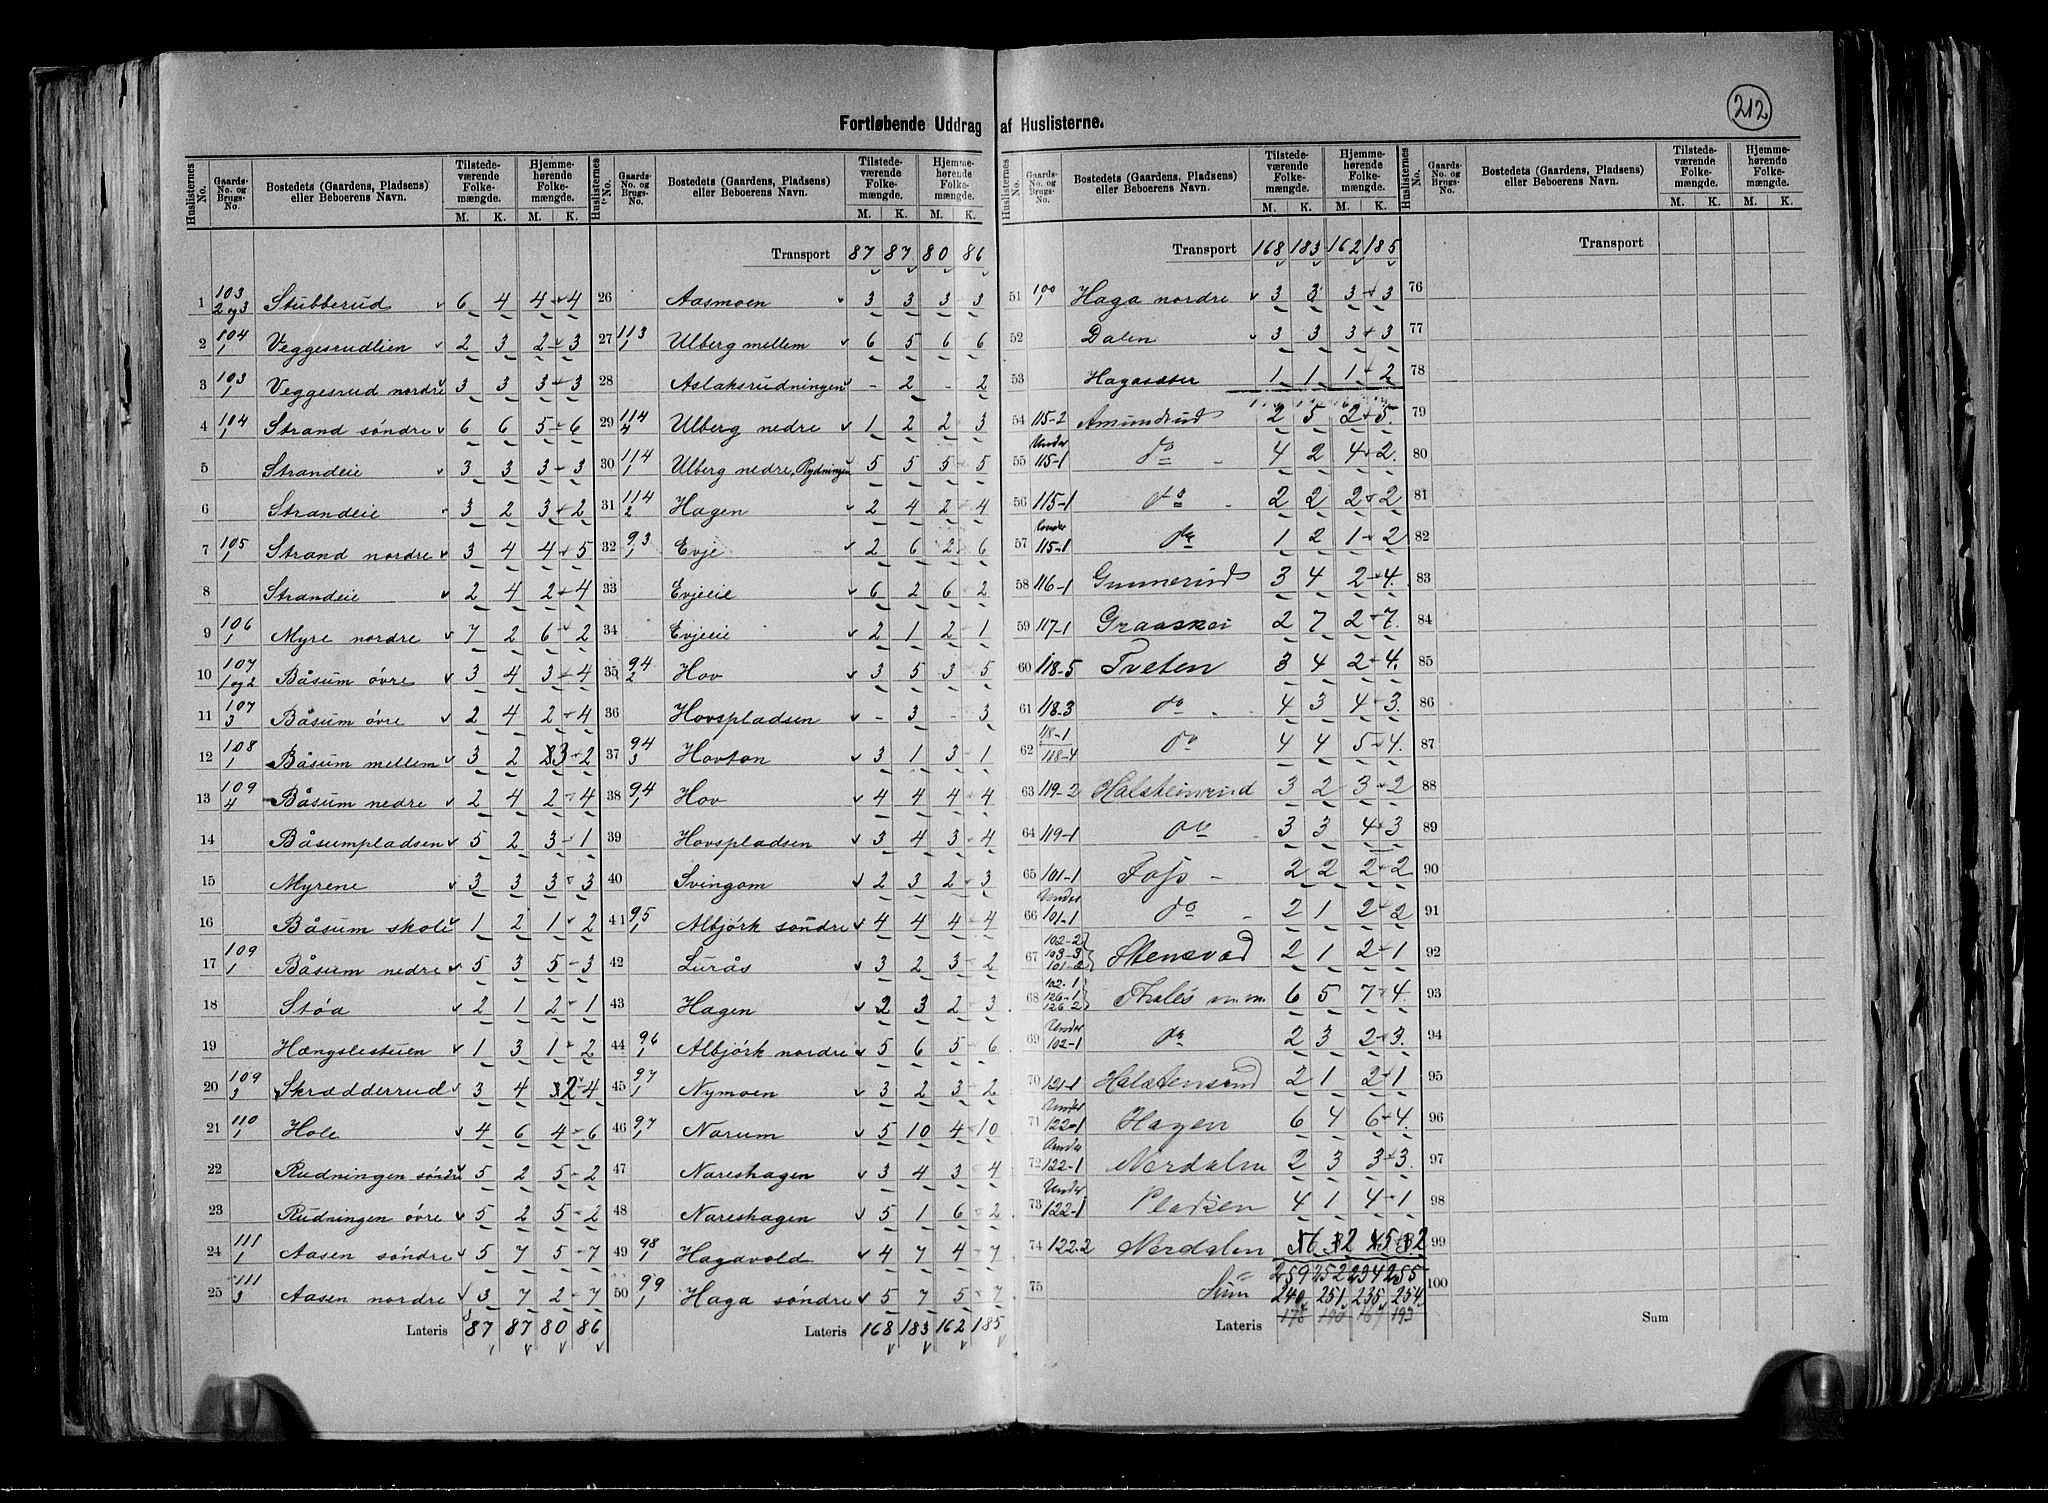 212
Fortløbende Uddrag af Huslisterne.
Huslisternes No. | Gaards-No. og Brugs-No. | Bostedets (Gaardens, Pladsens) eller Beboerens Navn. | Tilstedeværende Folkemængde. M. K. | Hjemmehørende Folkemængde. M. K.
1 103 2 og 3 Stubberud v 6 4 4 4
2 104 1 Veggesrudlien v 2 3 2 3
3 103 1 Veggesrud nordre v 3 3 3 3
4 104 1 Strand søndre v 6 6 5 6
5 Strandeie v 3 3 3 3
6 Strandeie 3 2 3 2
7 105 1 Strand nordre v 3 4 4 5
8 Strandeie 2 4 2 4
9 106 1 Myre nordre v 7 2 6 2
10 107 1 og 2 Båsum øvre v 3 4 3 4
11 107 3 Båsum øvre v 2 4 2 4
12 108 1 Båsum mellem v 3 2 3 2
13 109 4 Båsum nedre v 2 4 2 4
14 Båsumpladsen v 5 2 3 1
15 Myrene v 3 3 3 3
16 Båsum skole v 1 2 1 2
17 109 1 Båsum nedre v 5 3 5 3
18 Støa v 2 1 2 1
19 Hængslestuen v 1 3 1 2
20 109 3 Skrædderrud v 3 4 2 4
21 110 1 Hole v 4 6 4 6
22 Rudningen søndre v 5 2 5 2
23 Rudningen øvre v 5 2 5 2
24 111 1 Aasen søndre v 5 7 5 7
25 111 3 Aasen nordre v 3 7 2 7
Lateris 87 87 80 86
Huslisternes No. | Gaards-No. og Brugs-No. | Bostedets (Gaardens, Pladsens) eller Beboerens Navn. | Tilstedeværende Folkemængde. M. K. | Hjemmehørende Folkemængde. M. K.
Transport 87 87 80 86
26 Aasmoen v 3 3 3 3
27 113 1 Ulberg mellem v 6 5 6 6
28 Aslaksrudningen v - 2 - 2
29 114 4 Ulberg nedre v 1 2 2 3
30 114 1 Ulberg nedre, Rydningen 5 5 5 5
31 114 2 Hagen v 2 4 2 4
32 93 1 Evje v 2 6 2 6
33 Evjeeie v 6 2 6 2
34 Evjeeie v 2 1 2 1
35 94 2 Hov v 3 5 3 5
36 Hovspladsen v - 3 - 3
37 94 3 Hovton v 3 1 3 1
38 94 1 Hov v 4 4 4 4
39 Hovspladsen v 3 4 3 4
40 Svingom v 2 3 2 3
41 95 1 Albjørk søndre v 4 4 4 4
42 Lurås v 3 2 3 2
43 Hagen v 2 3 2 3
44 96 1 Albjørk nordre v 5 6 5 6
45 97 1 Nymoen v 3 2 3 2
46 97 1 Narum v 5 10 4 10
47 Nareshagen v 3 4 3 4
48 Nareshagen v 5 1 6 2
49 98 1 Hagavold v 4 7 4 7
50 99 1 Haga søndre v 5 7 5 7
Lateris 168 183 162 185
Huslisternes No. | Gaards-No. og Brugs-No. | Bostedets (Gaardens, Pladsens) eller Beboerens Navn. | Tilstedeværende Folkemængde. M. K. | Hjemmehørende Folkemængde. M. K.
Transport 168 183 162 185
51 100 1 Haga nordre v 3 3 3 3
52 Dalen v 3 3 3 3
53 Hagasæter 1 1 1 2
54 115-2 Amundrud 2 5 2 5
55 Under 115-1 do 4 2 4 2
56 115-1 do 2 2 2 2
57 Under 115-1 do 1 2 1 2
58 116-1 Gunnerud 3 4 2 4
59 117-1 Graaskei 2 7 2 7
60 118-5 Tveten 3 4 2 4
61 118-3 do 4 3 4 3
62 118-1 118-4 do 4 4 5 4
63 119-2 Halsteinrud 3 2 3 2
64 119-1 do 3 3 4 3
65 101-1 Fojs 2 2 2 2
66 Under 101-1 do 2 1 2 2
67 102-2 103-3 101-2 Stensvad 2 1 2 1
68 102-1 126-1 126-2 6 5 7 4
69 Under 102-1 do 2 3 2 3
70 121-1 Halstensrud 2 1 2 1
71 Under 122-1 Hagen 6 4 6 4
72 Under 122-1 Nerdalen 2 3 3 3
73 Under 122-1 Pladsen 4 1 4 1
74 122-2 Nerdalen 6 2 5 2
75 259 252 234 255
Sum 240 251 235 254
Lateris 178 190 169 193
Huslisternes No. | Gaards-No. og Brugs-No. | Bostedets (Gaardens, Pladsens) eller Beboerens Navn. | Tilstedeværende Folkemængde. M. K. | Hjemmehørende Folkemængde. M. K.
Transport
76
77
78
79
80
81
82
83
84
85
86
87
88
89
90
91
92
93
94
95
96
97
98
99
100
Sum